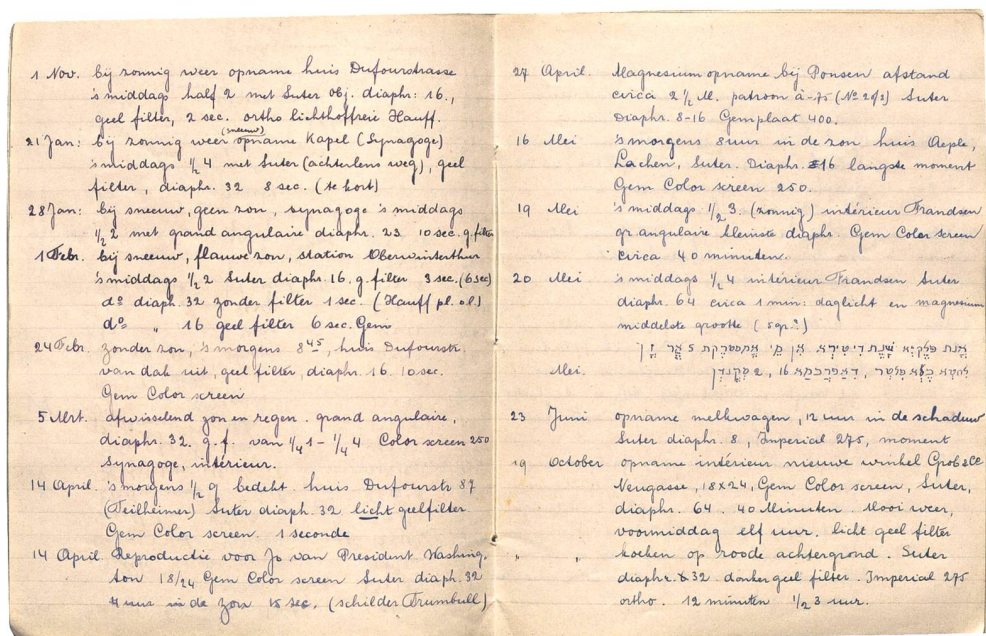 1 Nov. bij zonnig weer opname huis Dufourstrasse
's middags half 2 met Suter obj. diaphr: 16.,
geel filter, 2 sec. ortho lichthoffreie Hauff.
(sneeuw)
21 Jan: bij zonnig weer opname Kapel (Synagoge)
's middags ½ 4 met Suter (achterlens weg), geel
filter, diaphr. 32 8 sec. (te kort)
28 Jan: bij sneeuw, geen zon, synagoge 's middags
½ 2 met grand angulaire diaphr. 23 10 sec. g. filter
1 Febr. bij sneeuw, flauwe zon, station Oberwinterthur
's middags ½ 2 Suter diaphr. 16. g. filter 3 sec. (6 sec)
do diaph. 32 zonder filter 1 sec. (Hauff pl. o.l.)
do " 16 geel filter 6 sec. Gem
24 Febr. zonder zon, 's morgens 8 45, huis Dufourstr.
van dak uit, geel filter, diaphr. 16. 10 sec.
Gem Color screen
5 Mrt. afwisselend zon en regen. grand angulaire,
diaphr. 32. g.f. van ¼ 1 - ¼ 4 Color screen 250
synagoge, intérieur.
14 April. 's morgens ½ 9 bedekt. huis Dufourstr 87
(Teilheimer) Suter diaph. 32 licht geelfilter
Gem Color screen. 1 seconde
14 April. Reproductie voor Jo van President Washing.
ton 18/24 Gem Color screen Suter diaph. 32
4 uur in de zon 15 sec. (schilder Trumbull)
27 April. Magnesium opname bij Ponsen afstand
circa 2 ½ M. patroon à -75 (No 2 of 2) Suter
Diaphr. 8-16 Gem plaat 400.
16 Mei 's morgens 8 uur in de zon huis Aeple,
Lachen, Suter. Diaphr. 16 langste moment
Gem Color screen 250.
19 Mei 's middags ½ 3. (zonnig) intérieur Frandsen
gr angulaire kleinste diaphr. Gem Color screen
circa 40 minuten.
20 Mei 's middags ¼ 4 intérieur Frandsen Suter
diaphr. 64 circa 1 min: daglicht en magnesium
middelste grootte (5 gr.?)
5
Mei. 16, 2
23 Juni opname melkwagen, 12 uur in de schaduw
Suter diaphr. 8, Imperial 275, moment
19 October opname intérieur nieuwe winkel Grob & Ce
Neugasse, 18x24, Gem Color screen, Suter,
diaphr. 64. 40 Minuten. Mooi weer,
voormiddag elf uur. licht geel filter
" " koeken op roode achtergrond. Suter
diaphr. 32. donker geel filter. Imperial 275
ortho. 12 minuten ½ 3 uur.